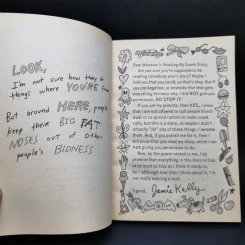 LOOK,
I'm not sure how they do
things where YOU'RE from
But around HERE, people
keep their BIG FAT
NOSES out of other
people's BIDNESS
Dear Whoever Is Reading My Dumb Diary,
Are you sure you're supposed to be
reading somebody else's diary? Maybe I
told you that you could, so that's okay. But if
you are Angeline, or anybody else that gets
everything the easy way, I did NOT give you
permission, SO STOP IT!
If you are my parents, then YES, I know
that I am not allowed to call people
or to
but this is a diary, so maybe I didn't
actually "do" any of these things. I wrote
them. And, if you punish me for it, then I
will know that you read my diary, which I am
not giving you permission to do.
Now, by the power vested in me, I do
promise that everything in this diary is true
or at least as true as I think it needs
to be
Signed,
Jamie Kelly
MOM